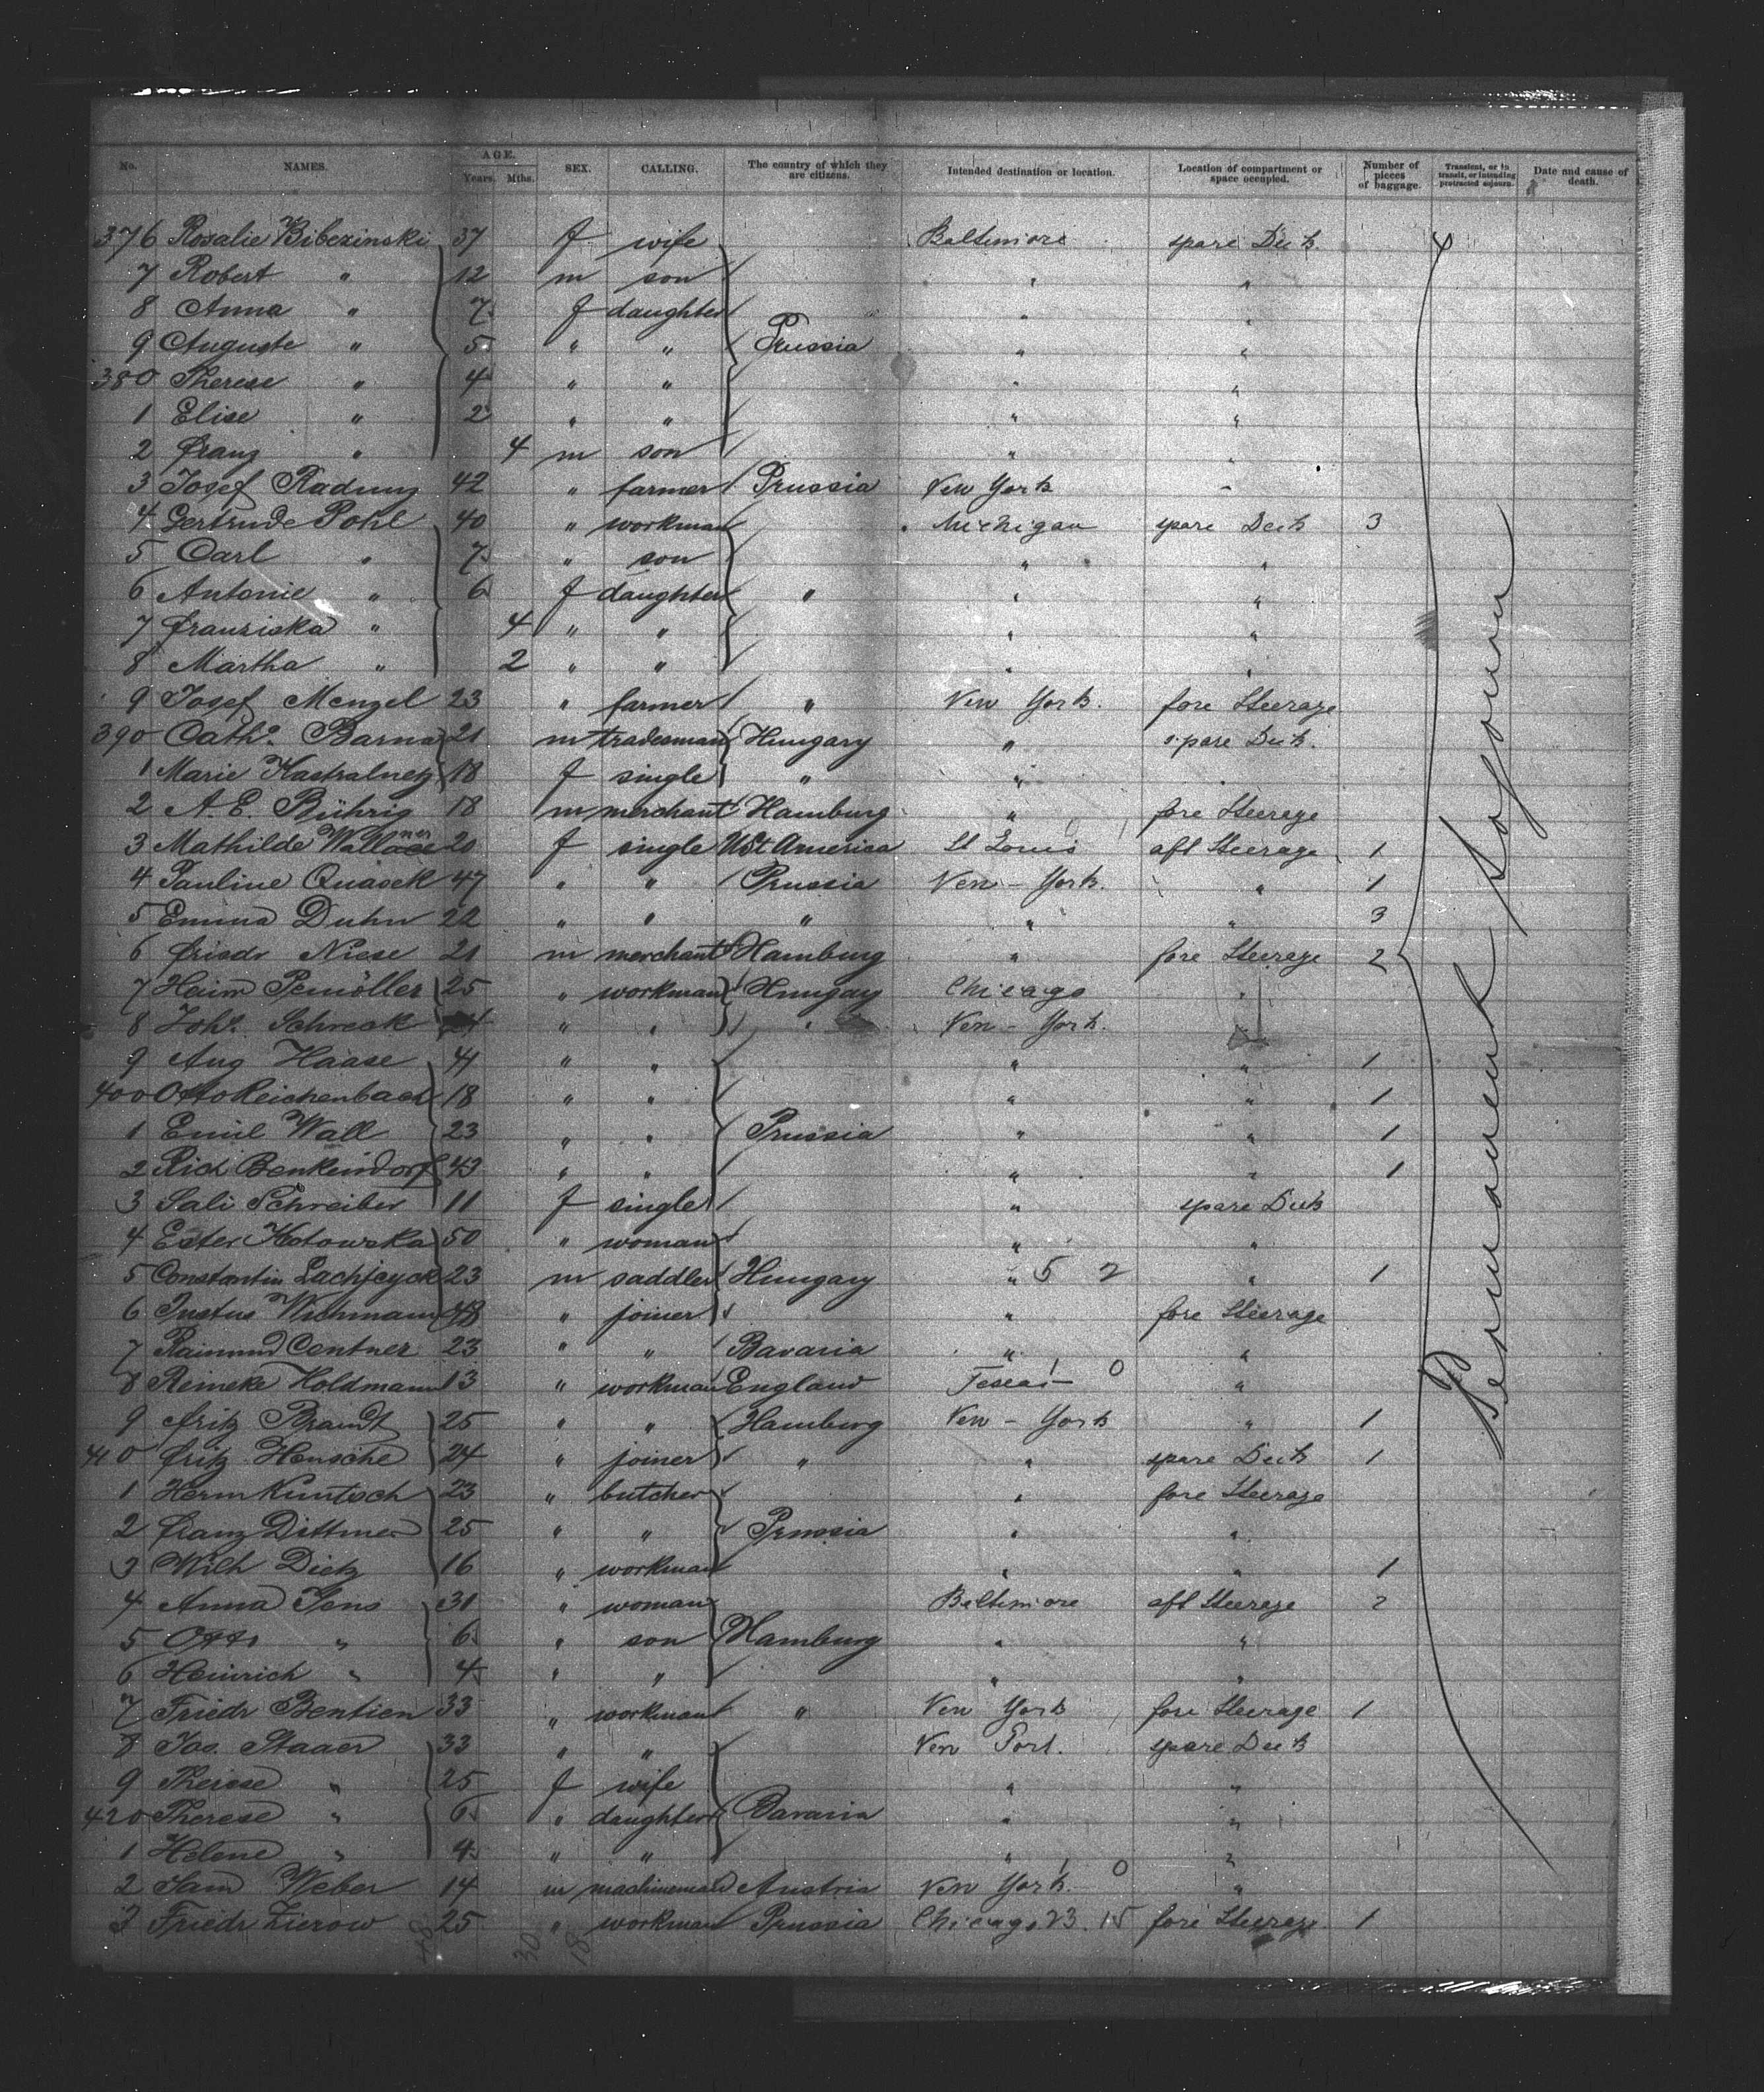 No. NAMES. AGE. Years. Mths. SEX. CALLING. The country of which they are citizens. Intended destination or location. Location of compartment or space occupied. Number of pieces of baggage. Transient, or in transit, or intending protracted sojourn. Date and cause of death.
376 Rosalie Bibezinski 37 f wife Baltimore spare Deck
7 Robert " 12 m son " "
8 Anna " 7 f daughter " "
9 Auguste " 5 " " Prussia " "
380 Therese " 4 " " " "
1 Elise " 2 " " " "
2 Franz " 4 m son " "
3 Josef Radunz 42 " farmer Prussia New York "
4 Gertrude Pohl 40 " workman Michigan spare Deck 3
5 Carl " 7 " son " "
6 Antonie " 6 f daughter " " "
7 Franziska " 4 " " " "
8 Martha " 2 " " " "
9 Josef Menzel 23 " farmer " New York. fore Steerage
390 Cath. Barna 21 m tradesman Hungary " spare Deck.
1 Marie 18 f single " " "
2 A. E. Bührig 18 m merchant Hamburg " fore Steerage
3 Mathilde Wallner 20 f single USt America St Louis aft Steerage 1
4 Pauline Quasek 47 " " Prussia New-York. " 1
5 Emma Duhn 22 " " " " " 3
6 Friedr Niese 21 m merchant Hamburg " fore Steerage 2
7 Heinr Pemöller 25 " workman Hungary Chicago "
8 Joh. Schreck " " " New-York.
9 Aug Haase 41 " " " " 1
400 Otto Reichenbach 18 " " " " 1
1 Emil Wall 23 " " Prussia " " 1
2 Rich Benkendorf 43 " " " " 1
3 Sali Schreiber 11 f single " spare Deck
4 Ester Kotowska 50 " woman " "
5 Constantin 23 m saddler Hungary " 5 2 " 1
6 Justus Wichmann 48 " joiner " fore Steerage
7 Raimund Centner 23 " " Bavaria " "
8 Reineke Holdmann 13 " workman England Texas 1 0 "
9 Fritz Brandt 25 " " Hamburg New-York " 1
410 Fritz Hensche 24 " joiner " " spare Deck 1
1 Herm Kuntsch 23 " butcher " fore Steerage
2 Franz Dittmer 25 " " Prussia " "
3 Wilh Dietz 16 " workman " " 1
4 Anna Jens 31 " woman Baltimore aft Steerage 2
5 Otto " 6 " son Hamburg " "
6 Heinrich " 4 " " " "
7 Friedr Bentien 33 " workman " New York fore Steerage 1
8 Jos. Staaer 33 " " New York. spare Deck
9 Therese " 25 f wife " "
420 Therese " 6 " daughter Bavaria " "
1 Helene " 4 " " " "
2 Sam Weber 14 m machineman Austria New York. 1 0 "
3 Friedr Zierow 25 " workman Prussia Chicago 23. 15 fore Steerage 1
48 30 18
Permanent Sojourn